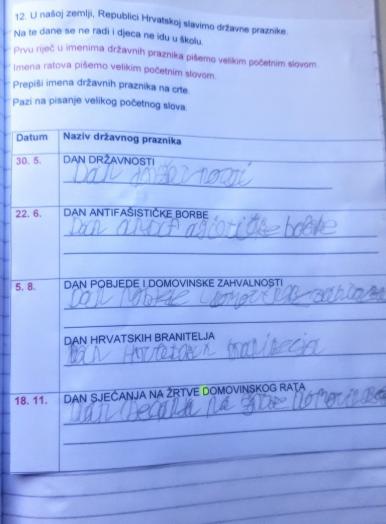 12. U našoj zemlji, Republici Hrvatskoj slavimo državne praznike.
Na te dane se ne radi i djeca ne idu u školu.
Prvu riječ u imenima državnih praznika pišemo velikim početnim slovom.
Imena ratova pišemo velikim početnim slovom.
Prepiši imena državnih praznika na crte.
Pazi na pisanje velikog početnog slova.
Datum Naziv državnog praznika
30. 5. DAN DRŽAVNOSTI
Dan
22. 6. DAN ANTIFAŠISTIČKE BORBE
Dan borbe
5. 8. DAN POBJEDE I DOMOVINSKE ZAHVALNOSTI
Dan
DAN HRVATSKIH BRANITELJA
Dan
18. 11. DAN SJEĆANJA NA ŽRTVE DOMOVINSKOG RATA
Dan na